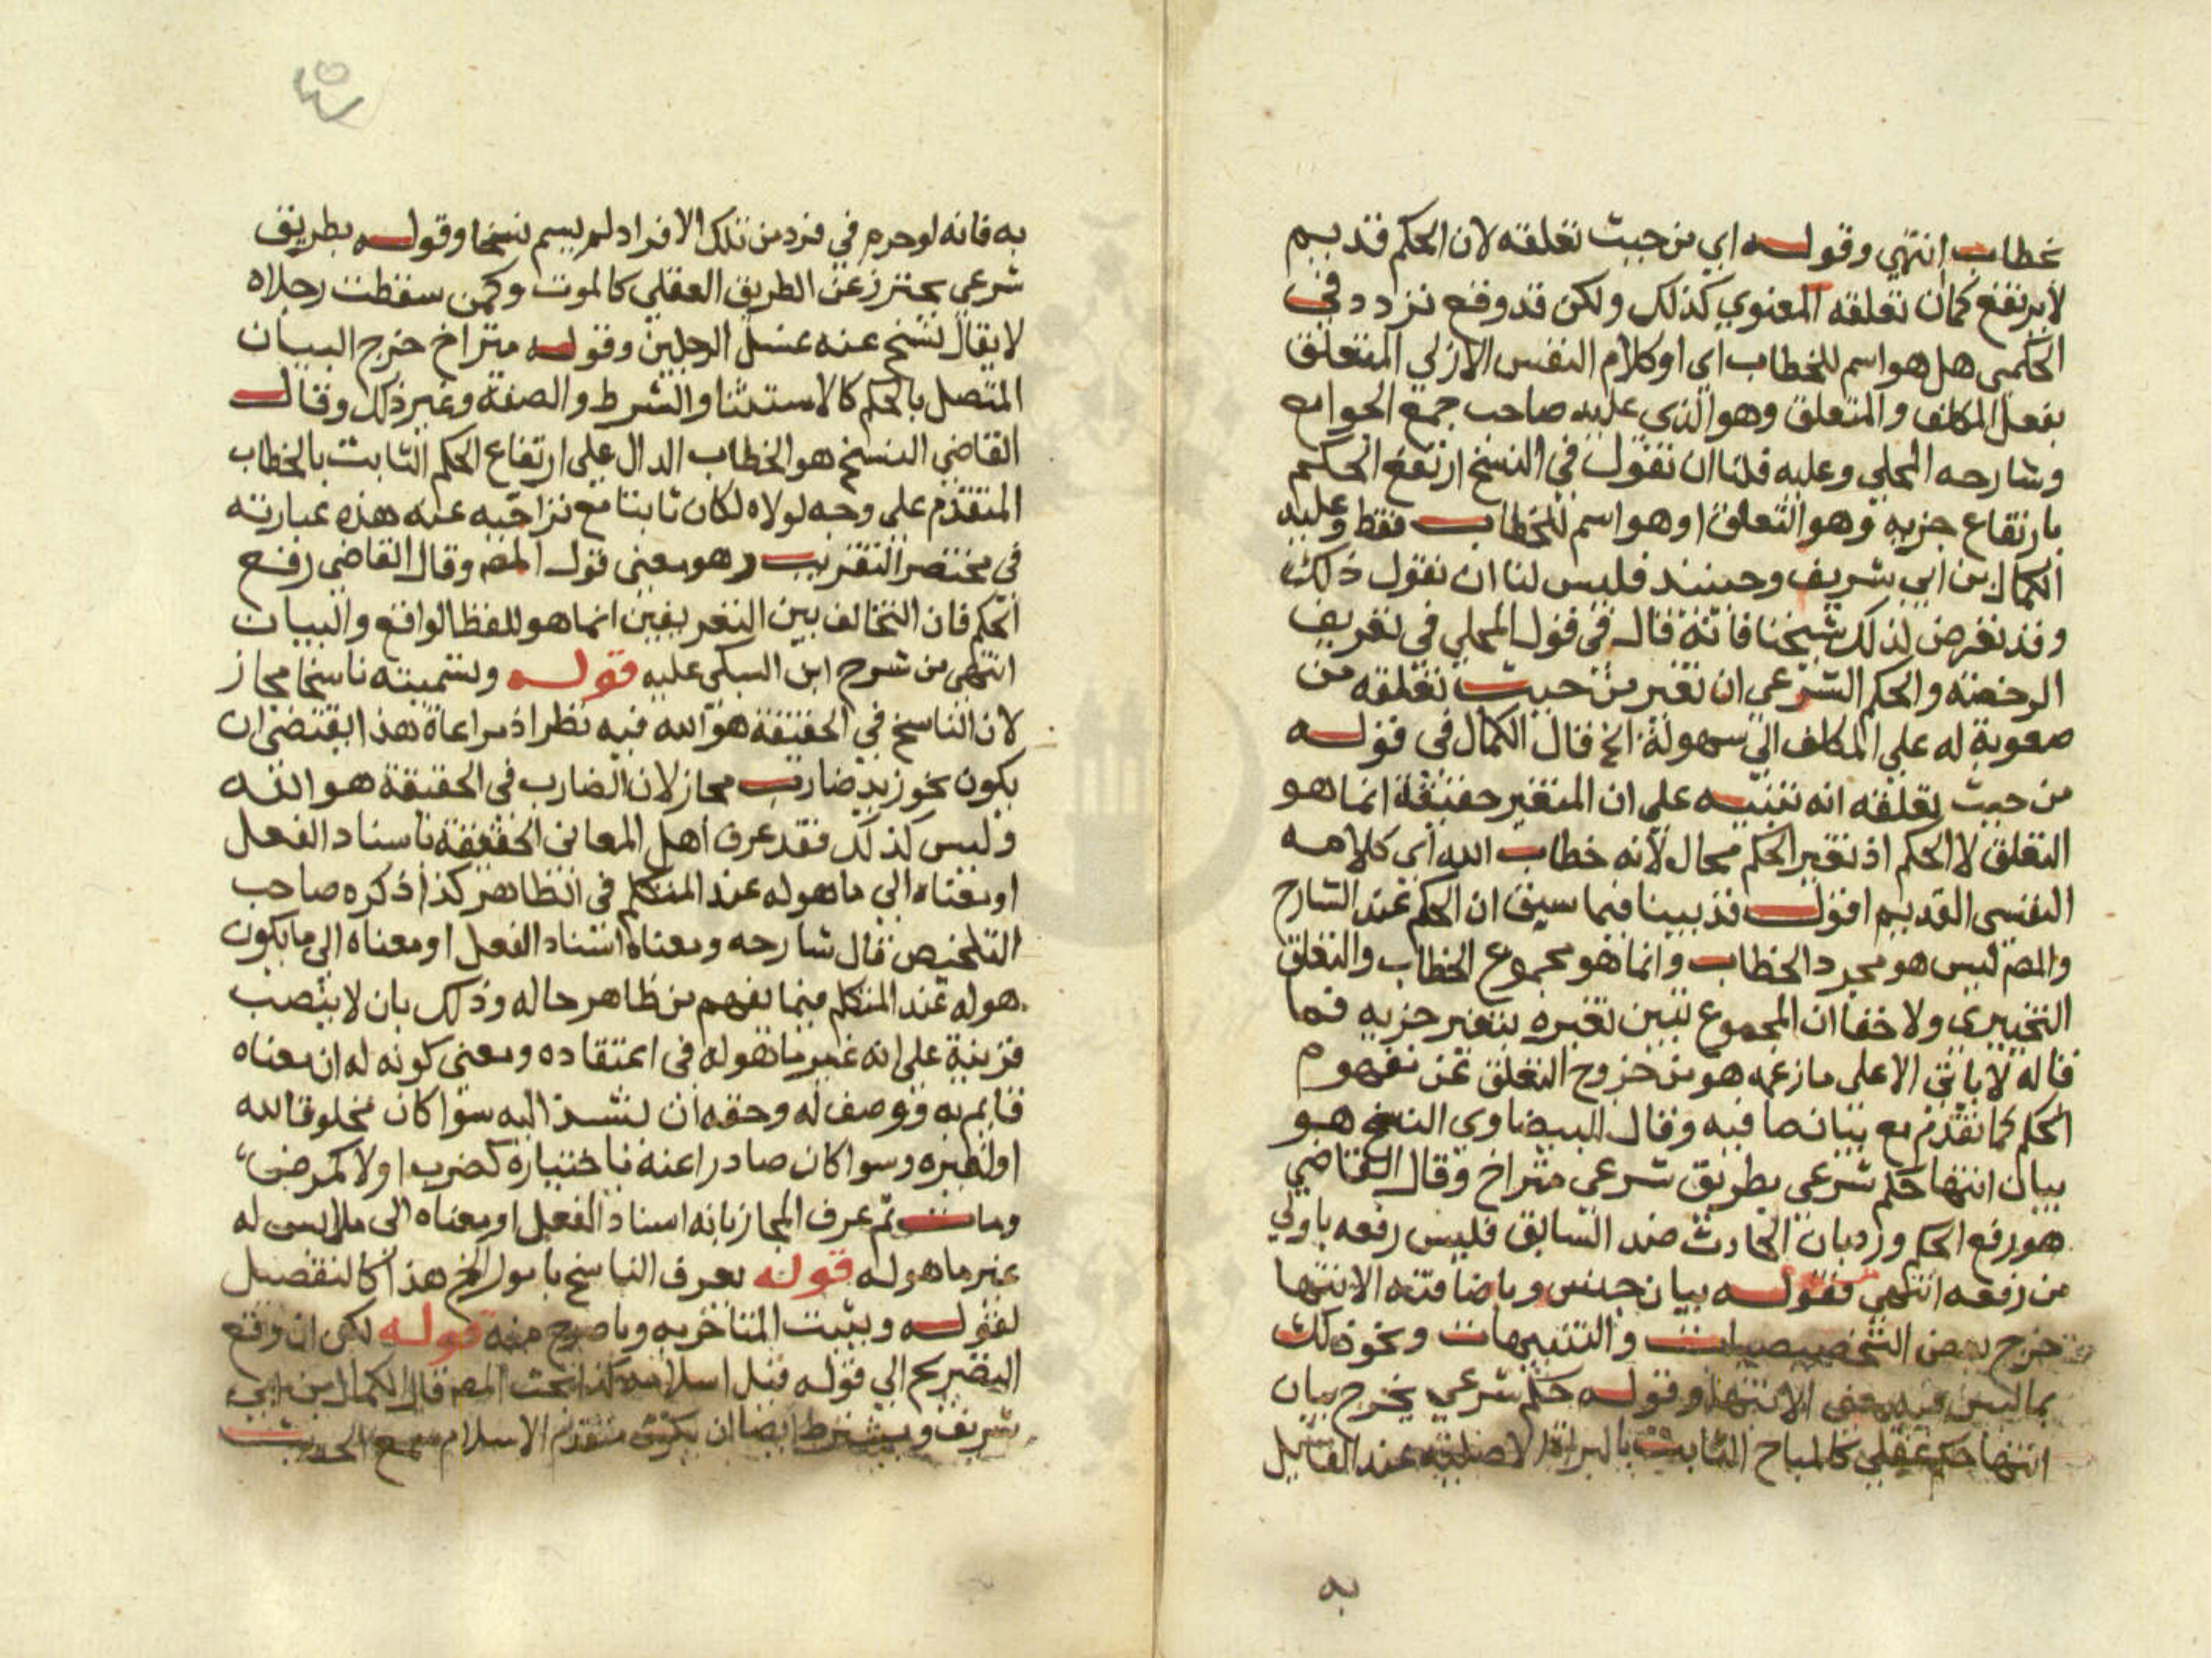 بخطاب انتهي وقوله اي من حيث تعلقه لان الحكم قديم
لا يرتفع كما ان تعلقه المعنوي كذلك ولكن قد وقع تردد في
الحكمي هل هو اسم للخطاب اي او كلام النفس الازلي المتعلق
بفعل المكلف والمتعلق وهو الذي عليه صاحب جمع الجوامع
وشارحه المحلي وعليه فلنا ان نقول في النسخ ارتفع الحكم
بارتفاع جزيه وهو التعلق او هو اسم للخطاب فقط وعليه
الكمال بن ابي شريف وحينئذ فليس لنا ان نقول ذلك
وقد تعرض لذلك شيخنا فانه قال في قول المحلي في تعريف
الرخصة والحكم الشرعي ان تغير من حيث تعلقه من
صعوبة له علي المكلف الي سهولة الخ قال الكمال في قوله
من حيث تعلقه انه تنبيه علي ان المتغير حقيقة انما هو
التعلق لا الحكم اذ تغير الحكم محال لانه خطاب الله اي كلامه
النفسي القديم اقول قد بينا فيما سبق ان الحكم عند الشارح
والمصم ليس هو مجرد الخطاب وانما هو مجموع الخطاب والتعلق
التخييري ولا خفا ان المجموع تبين تغيره بتغير جزيه فما
قاله لا ياتي الا علي ما زعمه هو من خروج التعلق عن مفهوم
الحكم كما تقدم مع بيان ما فيه وقال البيضاوي النسخ هو
بيان انتها حكم شرعي بطريق شرعي متراخ وقال القاضي
هو رفع الحكم ورد بان الحادث ضد السابق فليس رفعه باولي
من رفعه انتهي فقوله بيان جنس وباضافته الانتها
خرج بعض التخصيصات والتنبيهات ونحو ذلك
مما ليس فيه معني الانتها وقوله حكم شرعي يخرج بيان
انتها حكم عقلي كالمباح الثابت بالبراة الاصلية عند القايل
به
به فانه لو حرم في فرد من تلك الافراد لم يسم نسخا وقوله بطريق
شرعي يحترز عن الطريق العقلي كالموت وكمن سقطت رجلاه
لا يقال نسخ عنه غسل الرجلين وقوله متراخ خرج البيان
المتصل بالحكم كالاستثنا والشرط والصفة وغير ذلك وقال
القاضي النسخ هو الخطاب الدال علي ارتفاع الحكم الثابت بالخطاب
المتقدم علي وجه لولاه لكان ثابتا مع تراخيه عنه هذه عبارته
في مختصر التقريب وهو معني قول المصم وقال القاضي رفع
الحكم فان التخالف بين التعريفين انما هو للفظ الواقع والبيان
انتهي من شرح ابن السبكي عليه قوله وتسميته ناسخا مجاز
لان الناسخ في الحقيقة هو الله فيه نظر اذ مراعاة هذا يقتضي ان
يكون نحو زيد ضارب مجاز لان الضارب في الحقيقة هو الله
وليس كذلك فقد عرف اهل المعاني الحقيقة باسناد الفعل
او معناه الي ما هو له عند المتكلم في الظاهر كذا ذكره صاحب
التلخيص قال شارحه ومعناه اسناد الفعل او معناه الي ما يكون
هو له عند المتكلم فيما يفهم من ظاهر حاله وذلك بان لا ينصب
قرينة علي انه غير ما هو له في اعتقاده ومعني كونه له ان معناه
قايم به ووصف له وحقه ان يسند اليه سوا كان مخلوقا لله
او لغيره وسوا كان صادرا عنه باختياره كضرب او لا كمرض
ومات ثم عرف المجاز بانه اسناد الفعل او معناه الي ملابس له
غير ما هو له قوله يعرف الناسخ بامور الخ هذا كالتفصيل
لقوله ويثبت المتاخر به وما صرح منه قوله لكن ان وقع
التصريح الي قوله قبل اسلامه كذا بحث المصم قال الكمال بن ابي
شريف ويشترط ايضا ان يكون متقدم الاسلام سمع الحديث